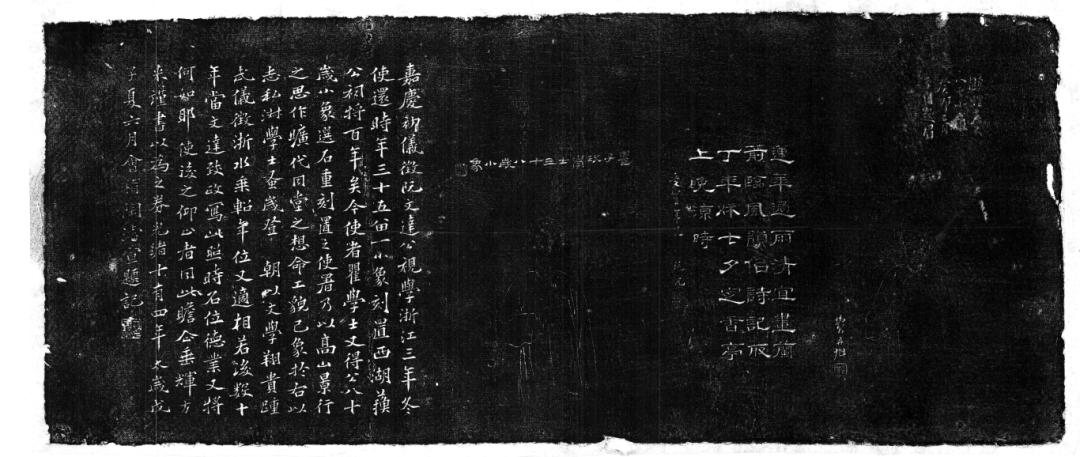 蓮華過雨清宜畫蘭
箭臨風韻似詩記取
丁年秋七夕定香亭
上晚涼時
瞿子玖學士三十八歲小象
嘉慶初儀徵阮文達公視學浙江三年冬
使還時年三十五留一小象刻置西湖蘇
公祠將百年矣今使者瞿學士又得公八十
歲小象選石重刻置之使署乃以高山景行
之思作曠代同堂之想命工貌己象於右以
志私淑學士蚤歲登 朝以文學翔貴踵
武儀徵浙水乘軺年位又適相若後數十
年當文達致政寫此照時名位德業又將
何如耶使後之仰止者同此瞻企垂輝方
來謹書以為之券光緒十有四年太歲戊
子夏六月會稽陶濬宣題記